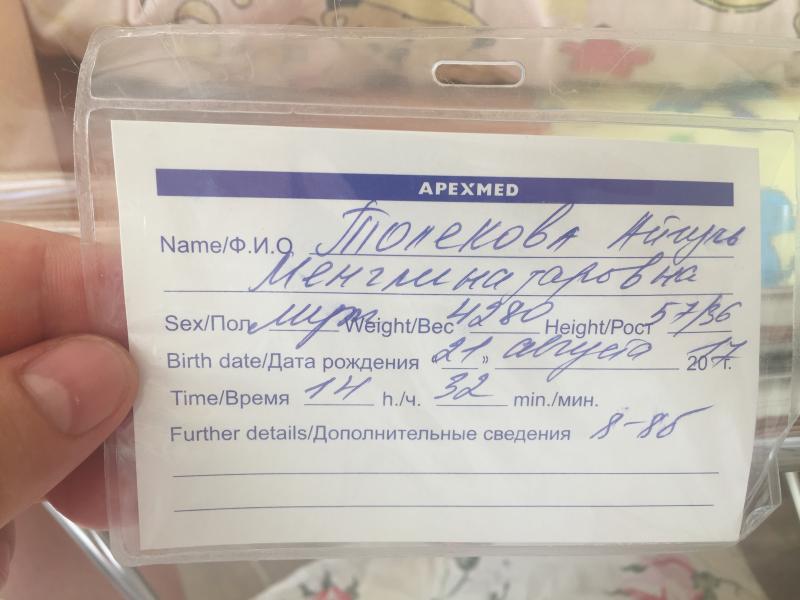 APEXMED
Name/Ф.И.О Толекова Айгуль
Менглиназаровна
Sex/Пол муж Weight/Вес 4280 Height/Рост 57/36
Birth date/Дата рождения "21" августа 2017 г.
Time/Время 14 h./ч. 32 min./мин.
Further details/Дополнительные сведения 8-8б